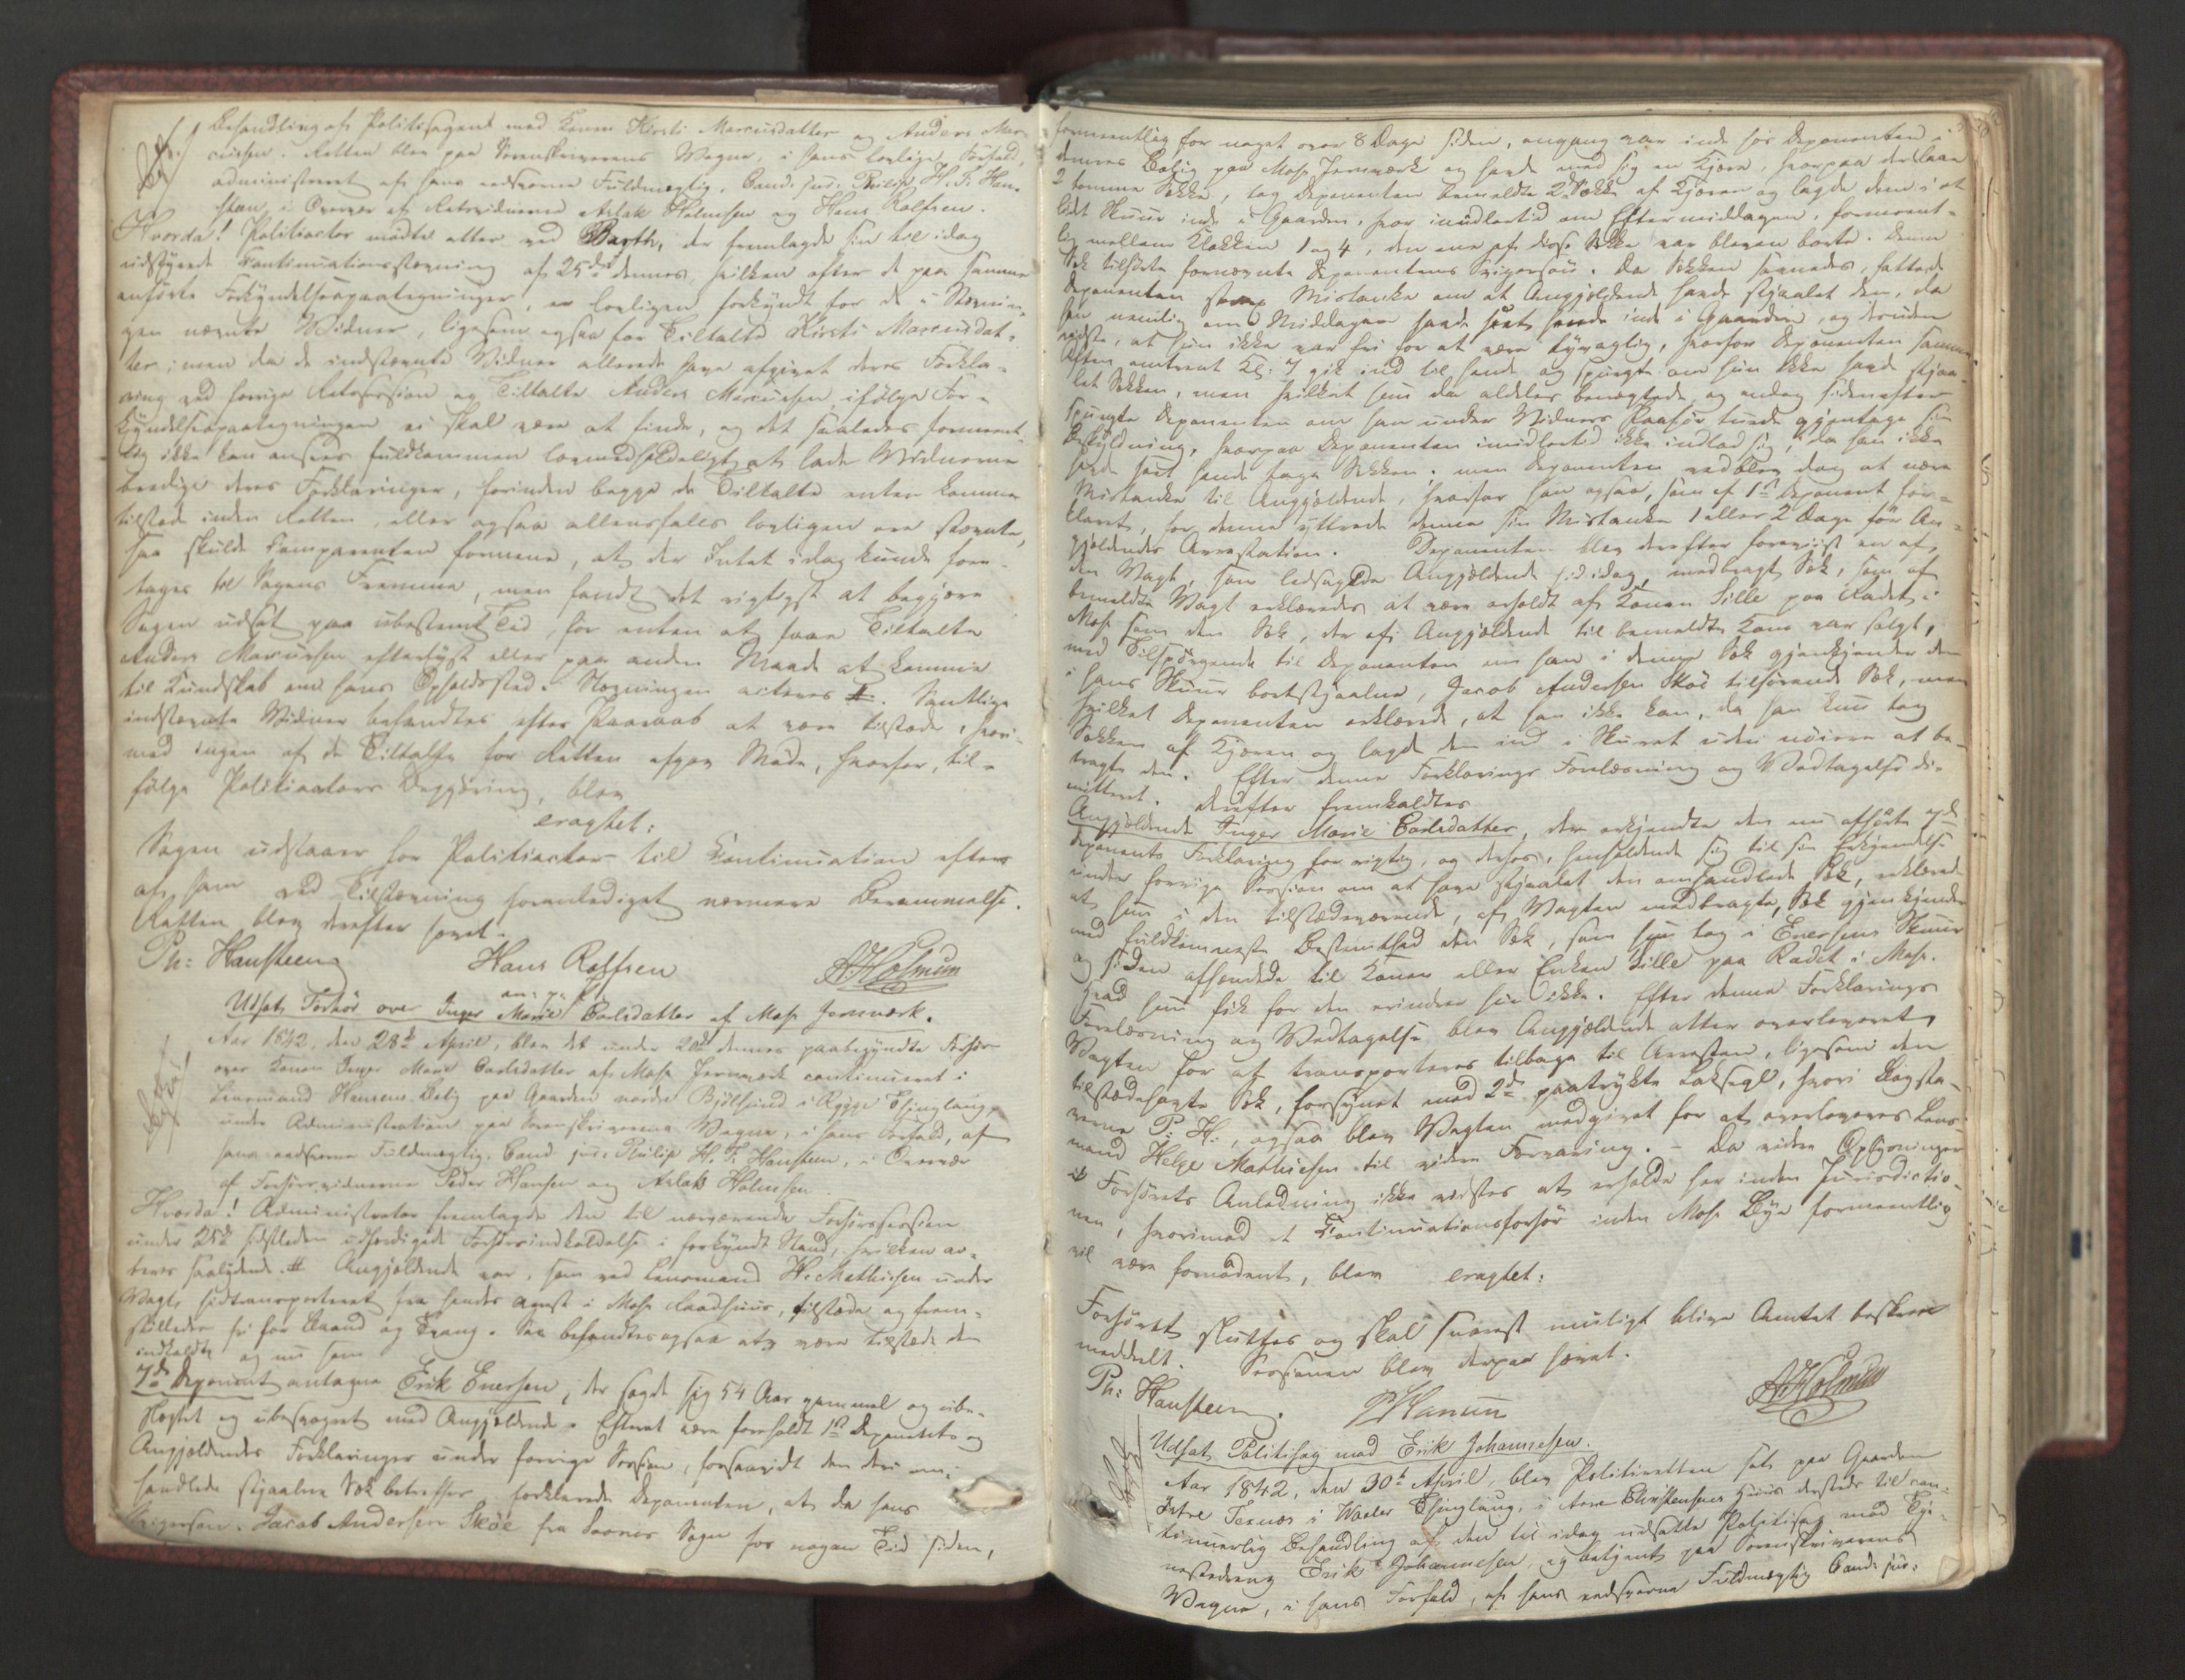 Behandling af Politisagen mod Konen Kirsti Marcusdatter og Anders Mar-
cusen. Retten blev paa Sorenskriverens Vegne, i hans lovlige Forfald,
administreret af hans edsvorne Fuldmægtig, Cand. jur. Philip H. F. Han-
steen, i Overvær af Retsvidnerne Aslak Holmsen og Hans Rolfsen.
Hvorda! Politiactor mødte atter ved Barth, der fremlagde sin til idag
udstædte Continuationsstævning af 25de dennes, hvilken efter de paa samme
anførte Forkyndelsespaategninger, er lovligen forkyndt for de i Stævnin-
gen nævnte Vidner, ligesom ogsaa for Tiltalte Kirsti Marcusdat-
ter; men da de indstævnte Vidner allerede have afgivet deres Forkla-
ring ved forrige Retssession og Tiltalte Anders Marcusen ifølge For-
kyndelsespaategningen ei skal være at finde, og det saaledes forment-
lig ikke kan ansees fuldkommen lovmedholdeligt at lade Vidnerne
beedige deres Forklaringer, forinden begge de Tiltalte enten komme
tilstede inden Retten, eller ogsaa allenfalds lovligen ere stævnte,
saa skulde Comparenten formene, at der Intet idag kunde fore-
tages til Sagens Fremme, men fandt det rigtigst at begjære
Sagen udsat paa ubestemt Tid, for enten at faae Tiltalte
Anders Marcusen efterlyst eller paa anden Maade at komme
til Kundskab om hans Opholdssted. Stævningen acteres #. Samtlige
indstævnte Vidner befandtes efter Paaraab at være tilstede, hvori-
mod ingen af de Tiltalte for Retten afgav Møde, hvorfor, til-
følge Politiactors Begjæring, blev
eragtet:
Sagen udstaaer for Politiactor til Continuation efter
af ham ved Tilstævning foranlediget nærmere Berammelse.
Retten blev derefter hævet.
Ph: Hansteen Hans Rolfsen AHolmsen
Udsat Forhør over Inger Marie Carlsdatter af Moss Jernværk.
Aar 1842, den 28de April, blev det under 20de dennes paabegyndte Forhør
over Konen Inger Marie Carlsdatter af Moss Jernværk continueret i
Lensmand Hansens Bolig paa Gaarden nordre Bjølsund i Rygge Thinglaug,
under Administration paa Sorenskriverens Vegne, i hans Forfald, af
hans edsvorne Fuldmægtig, Cand. jur. Philip H. F. Hansteen, i Overvær
af Forhørsvidnerne Peder Hansen og Aslak Holmsen.
Hvorda! Administrator fremlagde den til nærværende Forhørssession
under 25de sidstleden udfærdigede Forhørsindkaldelse i forkyndt Stand, hvilken ac-
teres saalydende #. Angjeldende var, som ved Lensmand H. Mathiesen under
Vagt, hidtransporteret fra hendes Arrest i Moss Raadhuus, tilstede og frem-
stilledes fri for Baand og Tvang. Saa befandtes ogsaa at være tilstede den
indkaldte og nu som
7de Deponent antagne Erik Enersen, der sagde sig 54 Aar gammel og ube-
slægtet og ubesvogret med Angjeldende. Efterat være foreholdt 1ste Deponents og
Angjeldendes Forklaringer under forrige Session, forsaavidt den deri om-
handlede stjaalne Sæk betræffer, forklarede Deponenten, at da hans
Svigersøn Jacob Andersen Skøe fra Soner Sogn for nogen Tid siden,
formentlig for noget over 8 Dage siden, engang var inde hos Deponenten i
dennes Bolig paa Moss Jernværk og havde med sig en Kjærre, hvorpaa der laae
2 tomme Sække, tog Deponenten bemeldte 2de Sække af Kjærren og lagde dem i et
lidet Skuur inde i Gaarden, hvor imidlertid om Eftermiddagen, forment-
lig mellem Klokken 1 og 4, den ene af disse Sække var bleven borte. Denne
Sæk tilhørte fornævnte Deponentens Svigersøn. Da Sækken savnedes, fattede
Deponenten strax Mistanke om at Angjeldende havde stjaalet den, da
han nemlig om Middagen havde seet hende inde i Gaarden, og desuden
vidste, at hun ikke var fri for at være tyvagtig, hvorfor Deponenten samme
Aften omtrent Kl. 7 gik ind til hende og spurgte om hun ikke havde stjaa-
let Sækken, men hvilket hun da aldeles benægtede, og endog sidenefter
spurgte Deponenten om han under Vidners Paahør turde gjentage sin
Beskyldning, hvorpaa Deponenten imidlertid ikke indlod sig, da han ikke
havde seet hende tage Sækken. men Deponenten vedblev dog at nære
Mistanke til Angjeldende, hvorfor han ogsaa, som af 1ste Deponent for-
klaret, for denne yttrede denne sin Mistanke 1 eller 2 Dage før An-
gjeldendes Arrestation. Deponenten blev derefter foreviist en af
den Vagt, som ledsagede Angjeldende hid idag, medbragt Sæk, som af
bemeldte Vagt erklæredes at være erholdt af Konen Sille paa Radet i
Moss som den Sæk, der af Angjeldende til bemeldte Kone var solgt,
med Tilspørgende til Deponenten om han i denne Sæk gjenkjender den
i hans Skuur bortstjaalne, Jacob Andersen Skøe tilhørende Sæk, men
hvilket Deponenten erklærede, at han ikke kan, da han kun tog
Sækken af Kjærren og lagde den ind i Skuuret uden nøiere at be-
tragte den. Efter denne Forklarings Forelæsning og Vedtagelse di-
mitteret. Derefter fremkaldtes
Angjeldende Inger Marie Carlsdatter, der erkjendte den nu afhørte 7de
Deponents Forklaring for rigtig, og derhos, henholdende sig til sin Erkjendelse
under forrige Session om at have stjaalet den omhandlede Sæk, erklærede
at hun i den tilstedeværende, af Vagten medbragte, Sæk gjenkjender
med fuldkomneste Bestemthed den Sæk, som hun tog i Enersens Skuur
og siden afhændede til Konen eller Enken Sille paa Radet i Moss.
Hvad hun fik for den erindrer hun ikke. Efter denne Forklarings
Forelæsning og Vedtagelse blev Angjeldende atter overleveret
Vagten for at transporteres tilbage til Arresten, ligesom den
tilstedehavte Sæk, forsynet med 2de paatrykte Laksegl, hvori Bogsta-
verne P. H., ogsaa blev Vagten medgivet for at overleveres Lens-
mand Helge Mathiesen til videre Forvaring. - Da videre Oplysninger
i Forhørets Anledning ikke vidstes at erholde her inden Jurisdictio-
nen, hvorimod et Continuationsforhør inden Moss Bye formeentlig
vil være fornødent, blev eragtet:
Forhøret sluttes og skal snarest muligt blive Amtet beskreven
meddelt. Sessionen blev derpaa hævet.
Ph: Hansteen. PHansen AHolmsen
Udsat Politisag mod Erik Johannesen.
Aar 1842, den 30te April, blev Politiretten sat paa Gaarden
Østre Texnes i Vaaler Thinglaug, i Arne Christensens Huus dersteds til con-
tinuerlig Behandling af den til idag udsatte Politisag mod Tje-
nestedreng Erik Johannesen, og betjent paa Sorenskriverens
Vegne, i hans Forfald, af hans edsvorne Fuldmægtig Cand. jur.